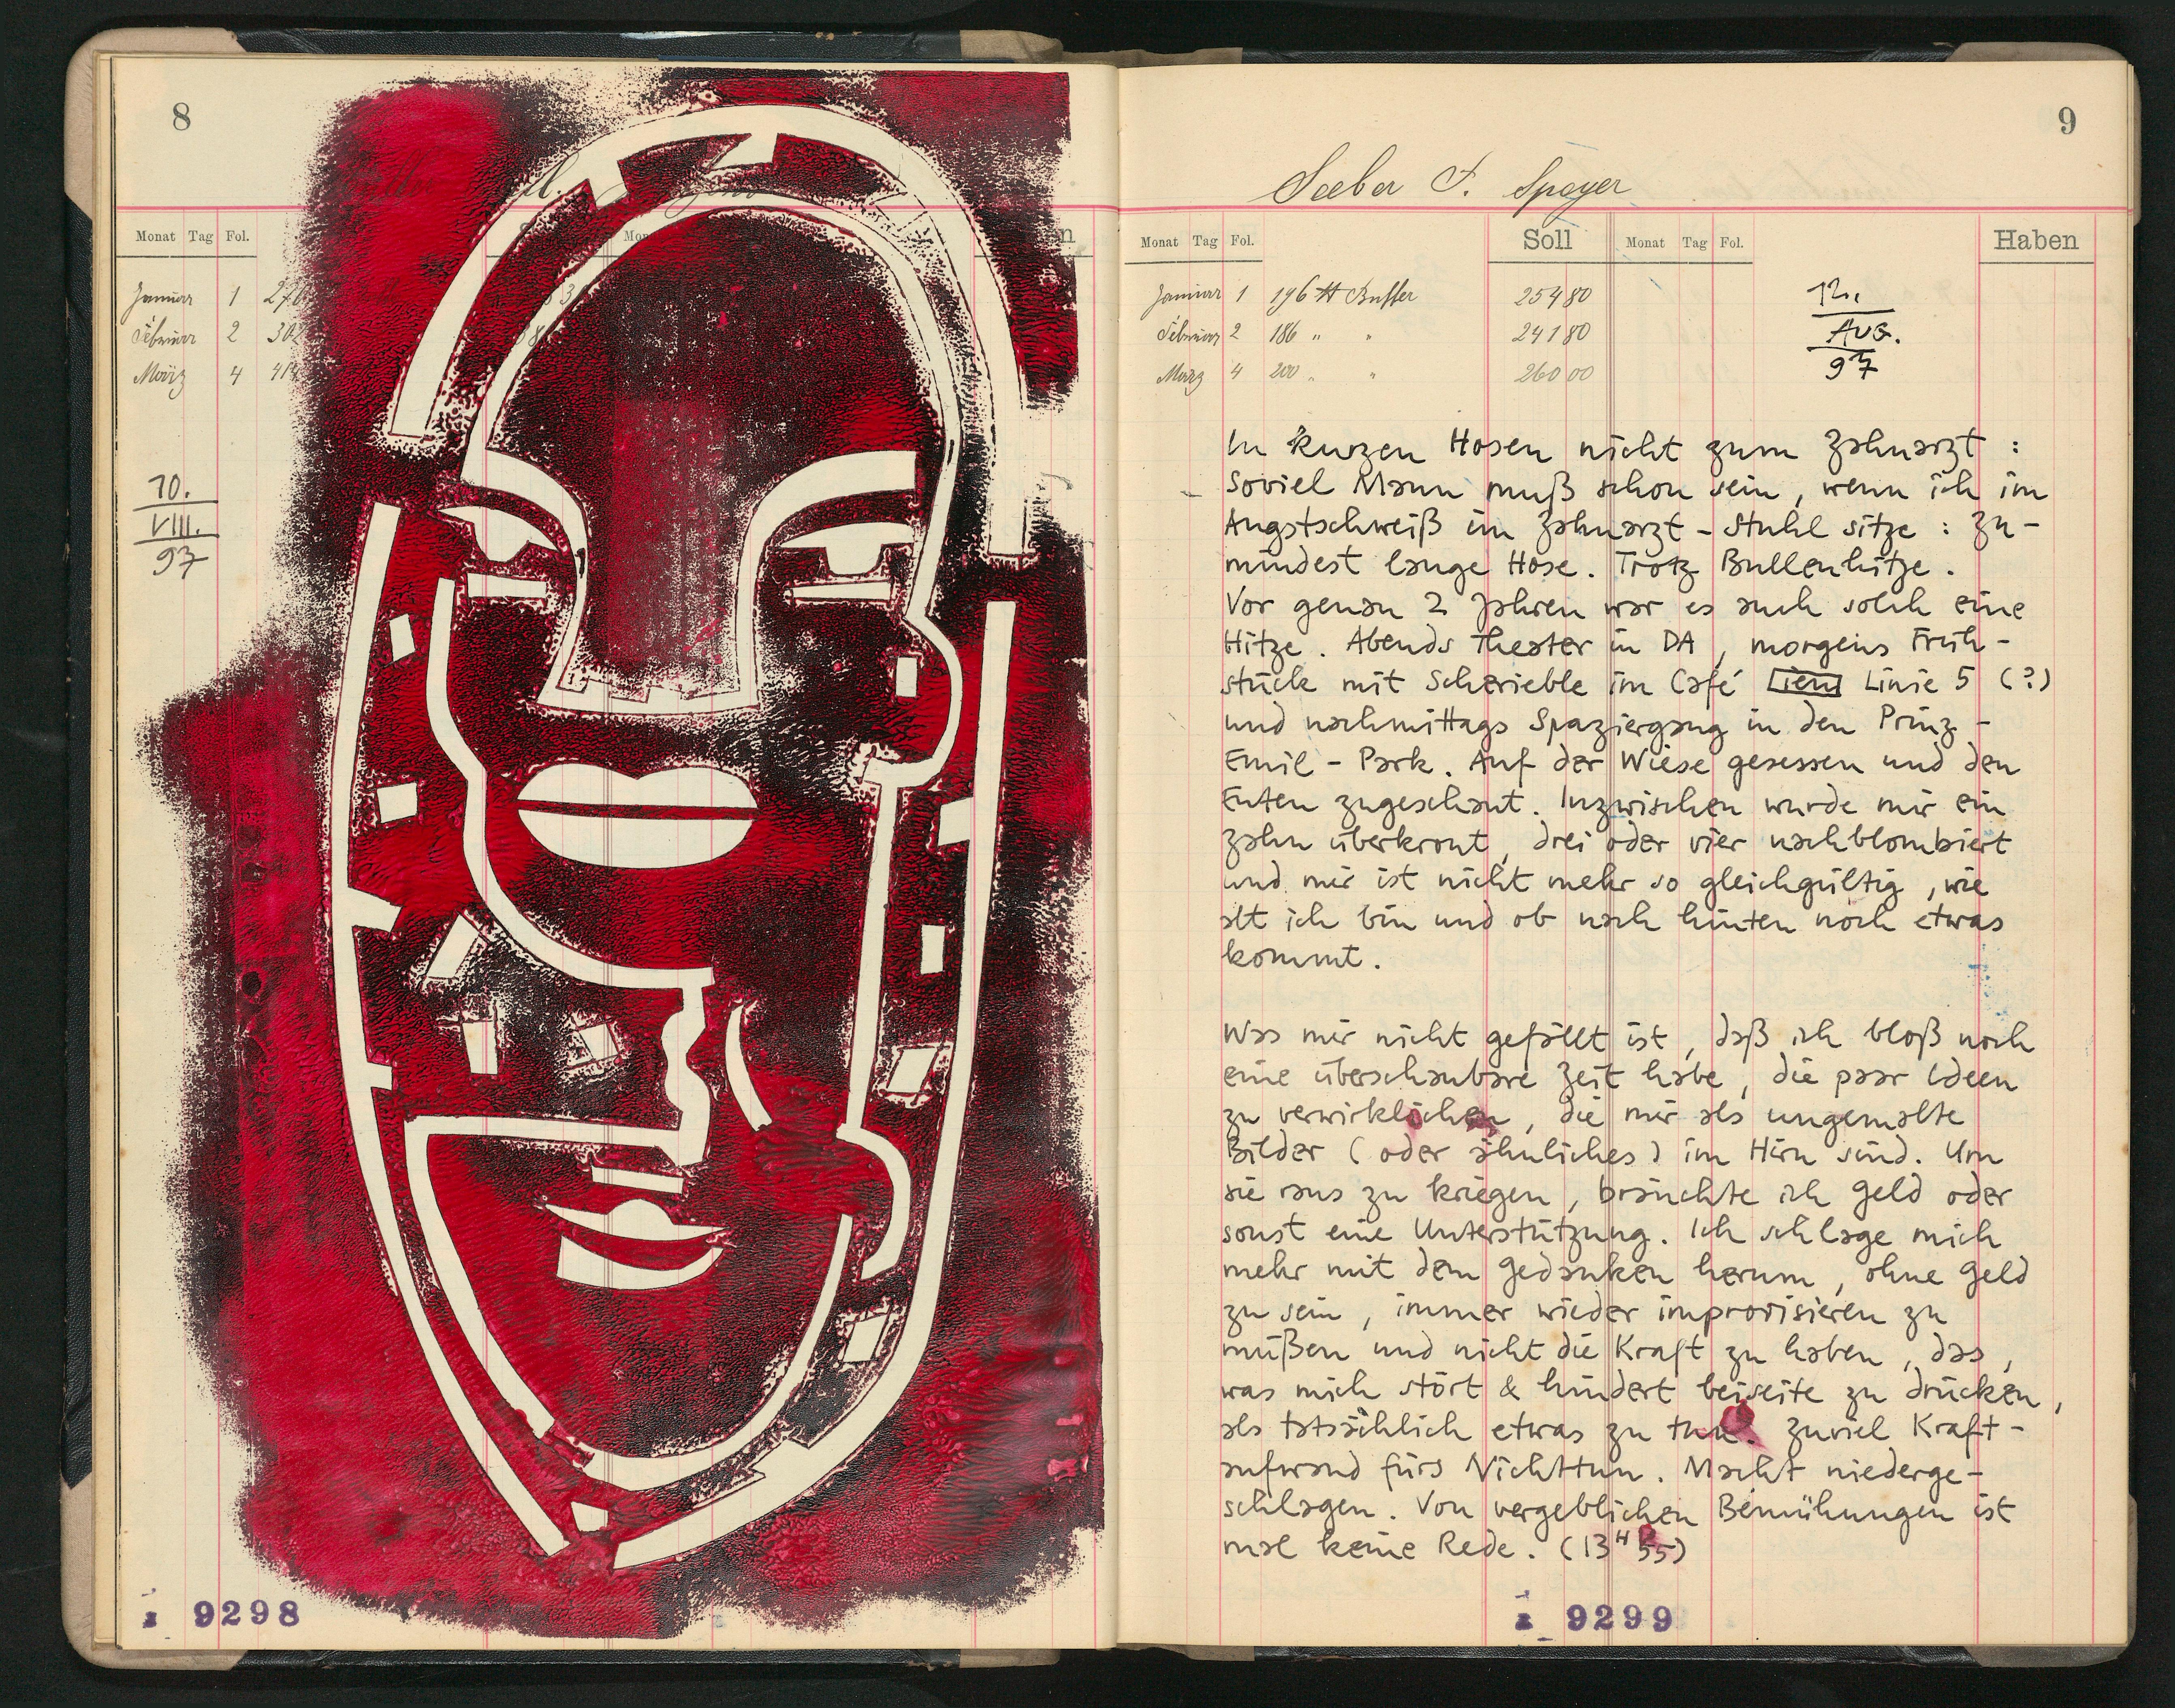 8
Monat Tag Fol.
Januar 1 276
Februar 2 302
März 4 414
10.
VIII.
97
9298
9
Seeber F. Speyer
Monat Tag Fol. Soll Monat Tag Fol. Haben
Januar 1 196 ℔ Butter 254 80
Februar 2 186 " " 241 80
März 4 200 " " 260 00
12.
AUG.
97
In kurzen Hosen nicht zum Zahnarzt :
Soviel Mann muß schon sein, wenn ich im
Angstschweiß im Zahnarzt-Stuhl sitze : zu-
mindest lange Hose. Trotz Bullenhitze.
Vor genau 2 Jahren war es auch solch eine
Hitze. Abends Theater in DA, morgens Früh-
stück mit Scherieble im Café ien Linie 5 (?)
und nachmittags Spaziergang in den Prinz-
Emil-Park. Auf der Wiese gesessen und den
Enten zugeschaut. Inzwischen wurde mir ein
Zahn überkront, drei oder vier nachblombiert
und mir ist nicht mehr so gleichgültig, wie
alt ich bin und ob nach hinten noch etwas
kommt.
Was mir nicht gefällt ist, daß ich bloß noch
eine überschaubare Zeit habe, die paar Ideen
zu verwirklichen, die mir als ungemalte
Bilder (oder ähnliches) im Hirn sind. Um
sie raus zu kriegen, bräuchte ich Geld oder
sonst eine Unterstützung. Ich schlage mich
mehr mit dem Gedanken herum, ohne Geld
zu sein, immer wieder improvisieren zu
müßen und nicht die Kraft zu haben, das,
was mich stört & hindert beiseite zu drücken,
als tatsächlich etwas zu tun. Zuviel Kraft-
aufwand fürs Nichttun. Macht niederge-
schlagen. Von vergeblichen Bemühungen ist
mal keine Rede. (13 H 55)
9299